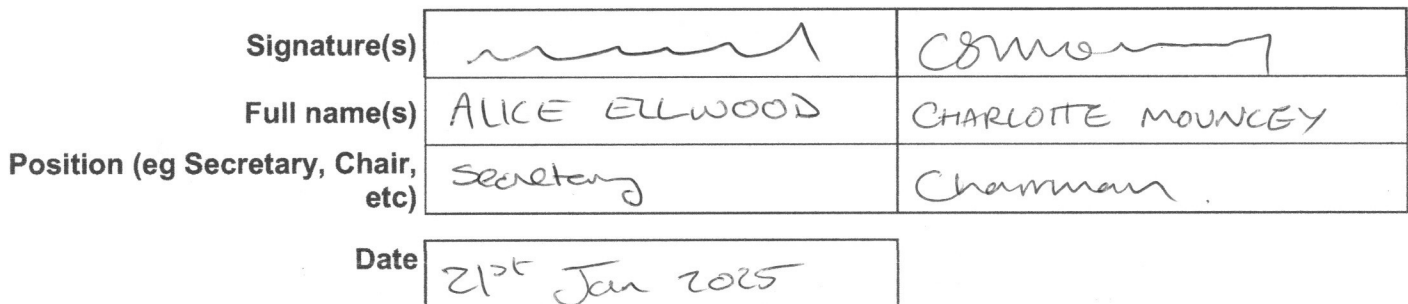 Signature(s) CSMo
Full name(s) ALICE ELLWOOD CHARLOTTE MOUNCEY
Position (eg Secretary, Chair, etc) Secretary Chairman.
Date 21st Jan 2025